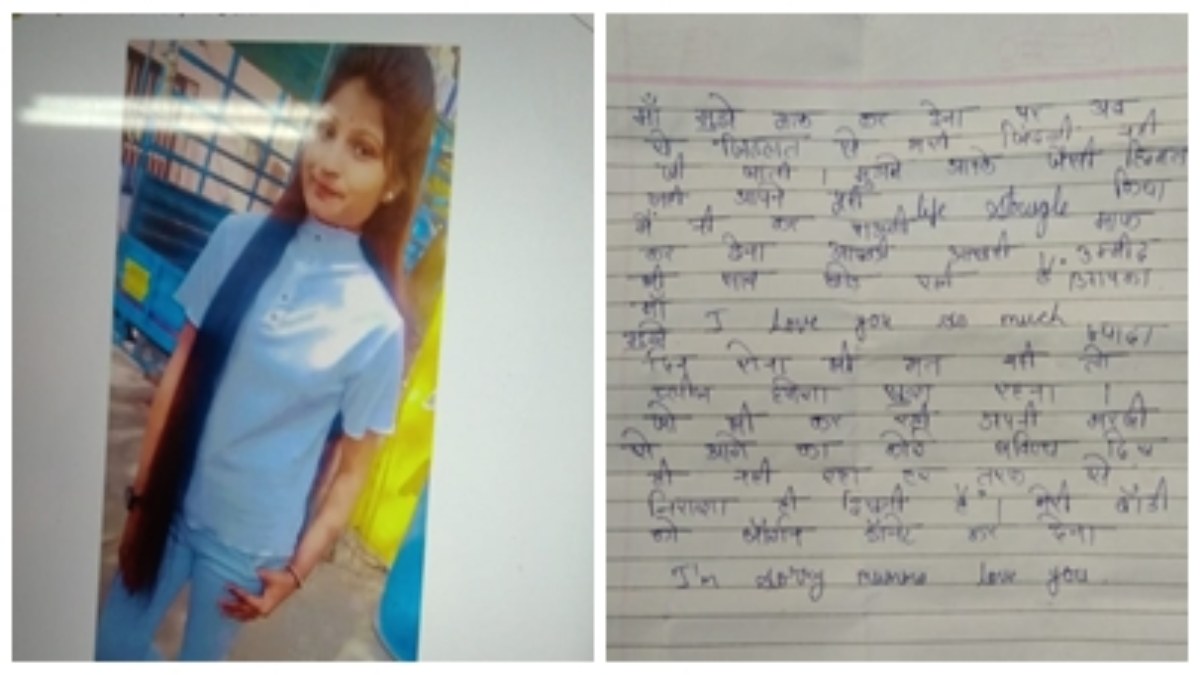 माँ मुझे माफ कर देना पर अब
से जिल्लत से भरी जिंदगी नही
जी जाती । मुझमे आपके जैसी हिम्मत
नही आपने पूरी life struggle किया
में नी कर पाऊंगी माफ
कर देना आपकी आखरी उम्मीद
भी साथ छोड़ रही है आपका
माँ I love you so much
मुझे ज्यादा
दिन रोना भी मत नही तो
बिना खुश रहना ।
जो भी कर रही अपनी मरजी
से आगे का कोई भविष्य दिख
ही नही रहा हर तरफ से
निराशा ही दिखती है । मेरी बॉडी
को ऑर्गन डोनेट कर देना
I'm sorry mumma love you